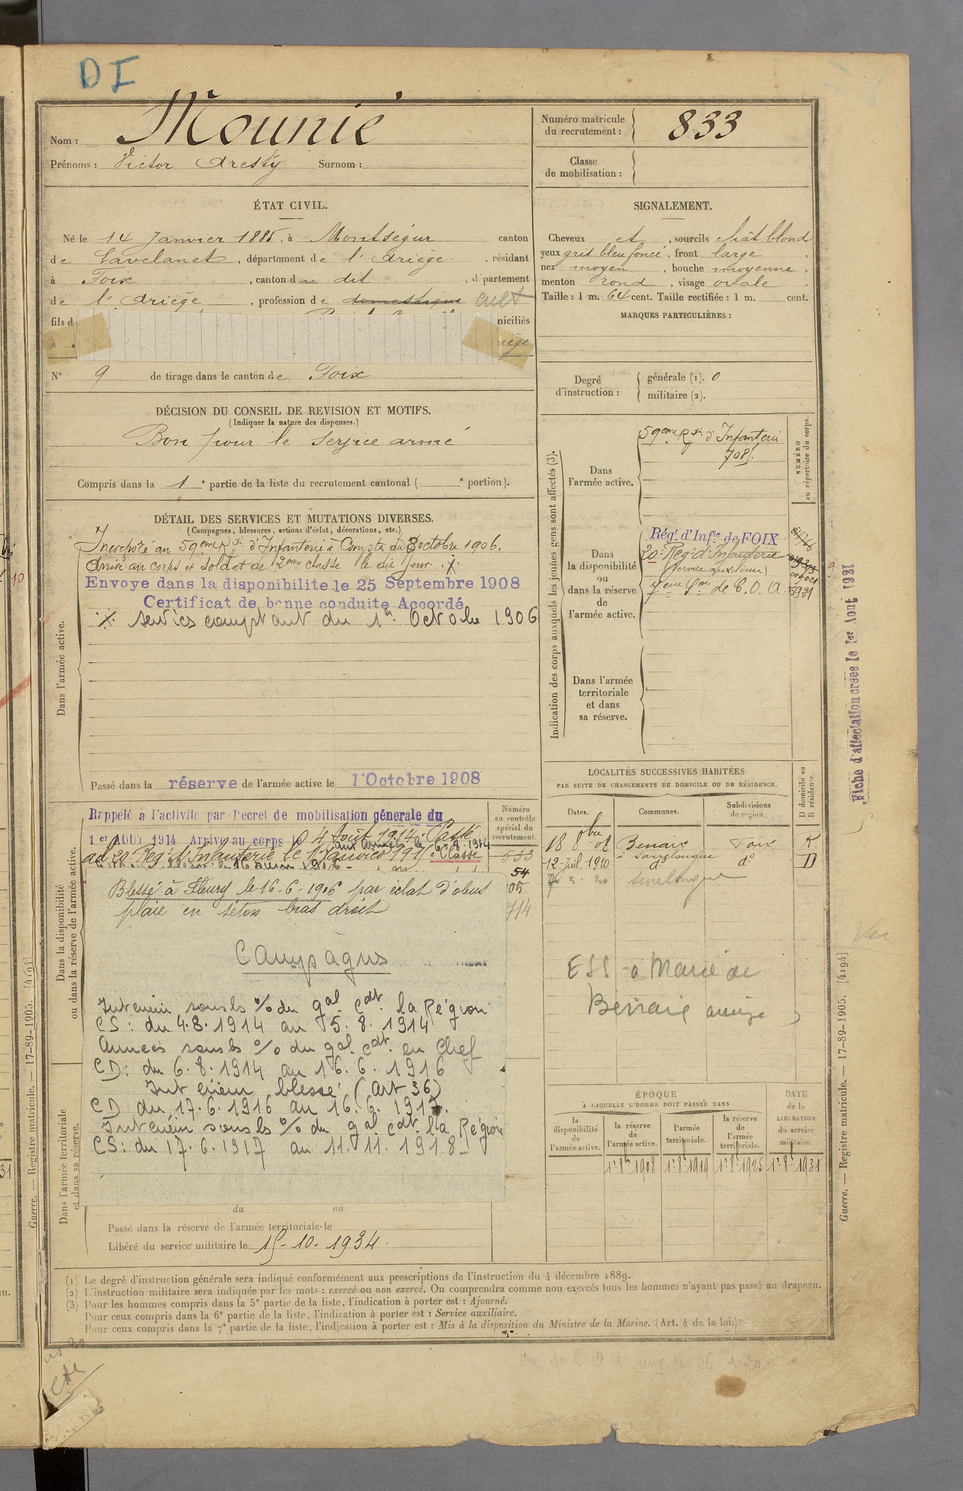 DI
Nom : Mounié
Prénoms : Victor Aresty Surnom :
Numéro matricule du recrutement : 833
Classe de mobilisation :
ÉTAT CIVIL.
Né le 14 Janvier 1885, à Montségur canton
de Lavelanet, département de l'Ariège, résidant
à Foix, canton du dit, département
de l'Ariège, profession de domestique cult
fils d niciliés
à iège
N° 9 de tirage dans le canton de Foix
SIGNALEMENT.
Cheveux et , sourcils chât blond
yeux gris bleu foncé, front large
nez moyen, bouche moyenne,
menton rond, visage ovale.
Taille : 1 m. 64 cent. Taille rectifiée : 1 m. cent.
MARQUES PARTICULIÈRES :
Degré d'instruction : générale (1). 0
militaire (2).
DÉCISION DU CONSEIL DE REVISION ET MOTIFS.
(Indiquer la nature des dispenses.)
Bon pour le service armé
Compris dans la 1e partie de la liste du recrutement cantonal ( e portion).
DÉTAIL DES SERVICES ET MUTATIONS DIVERSES.
(Campagnes, blessures, actions d'éclat, décorations, etc.)
Dans l'armée active.
Incorporé au 59eme Rgt d'Infanterie à Compter du 8 octobre 1906.
Arrivé au corps et soldat de 2eme classe le dit jour. X
Envoye dans la disponibilite le 25 Septembre 1908
Certificat de bonne conduite Accordé
X services comptant du 1er Octobre 1906
Passé dans la réserve de l'armée active le 1 Octobre 1908
Indication des corps auxquels les jeunes gens sont affectés (3).
NUMÉRO au répertoire du corps.
Dans l'armée active.
59eme Rgt d'Infanterie
7081.
Dans la disponibilité ou dans la réserve de l'armée active.
Régt d'Infie de FOIX
20e Régt d'Infanterie
(service auxiliaire)
de C.O.A
Dans l'armée territoriale et dans sa réserve.
Fiche d'affectation créée le 1er Aout 1921
Dans la disponibilité ou dans la réserve de l'armée active.
Numéro au contrôle spécial du recrutement.
Rappelé à l'activité par Décret de mobilisation générale du
1er Août 1914 Arrivé au corps le 4 Août 1914. Passé
au 20e Rég. d'Infanterie le 1 Janvier 191
533
54
05
714
Blessé à Fleury le 16-6-1916 par éclat d'obus
plaie en séton bras droit
Campagnes
Intérieur sous les o/ du gal Cdt la Région
CS : du 4.8.1914 au 5.8.1914
Armées sous les o/o du gal Cdt en Chef
CD : du 6.8.1914 au 16.6.1916
Intérieur blessé (Art 36)
CD du 17.6.1916 au 16.6.1917.
Intérieur sous les o/ du gal Cdt la Région
CS : du 17.6.1917 au 11.11.1918
Dans l'armée territoriale et dans sa réserve.
du au
Passé dans la réserve de l'armée territoriale le
Libéré du service militaire le 15-10-1934.
LOCALITÉS SUCCESSIVES HABITÉES
PAR SUITE DE CHANGEMENTS DE DOMICILE OU DE RÉSIDENCE.
Dates. Communes. Subdivisions de région. D domicile ou R résidence.
18 8bre 08 Benaix Foix R
12 Juil. 1910 à Sautelongue do D
ESS à Marié de
Benaix
ÉPOQUE
À LAQUELLE L'HOMME DOIT PASSER DANS
DATE de la LIBÉRATION du service militaire.
la disponibilité de l'armée active.
la réserve de l'armée active.
l'armée territoriale.
la réserve de l'armée territoriale.
1er 8bre 1908 1er 8 1919 1er 8 1925 1er 8 1931
(1) Le degré d'instruction générale sera indiqué conformément aux prescriptions de l'instruction du 4 décembre 1889.
(2) L'instruction militaire sera indiquée par les mots : exercé ou non exercé. On comprendra comme non exercés tous les hommes n'ayant pas passé au drapeau.
(3) Pour les hommes compris dans la 5e partie de la liste, l'indication à porter est : Ajourné.
Pour ceux compris dans la 6e partie de la liste, l'indication à porter est : Service auxiliaire.
Pour ceux compris dans la 7e partie de la liste, l'indication à porter est : Mis à la disposition du Ministre de la Marine. (Art. 4 de la loi.)
Guerre. — Registre matricule. — 17-89-1905. [4194]
Guerre. — Registre matricule. — 17-89-1905. [4194]